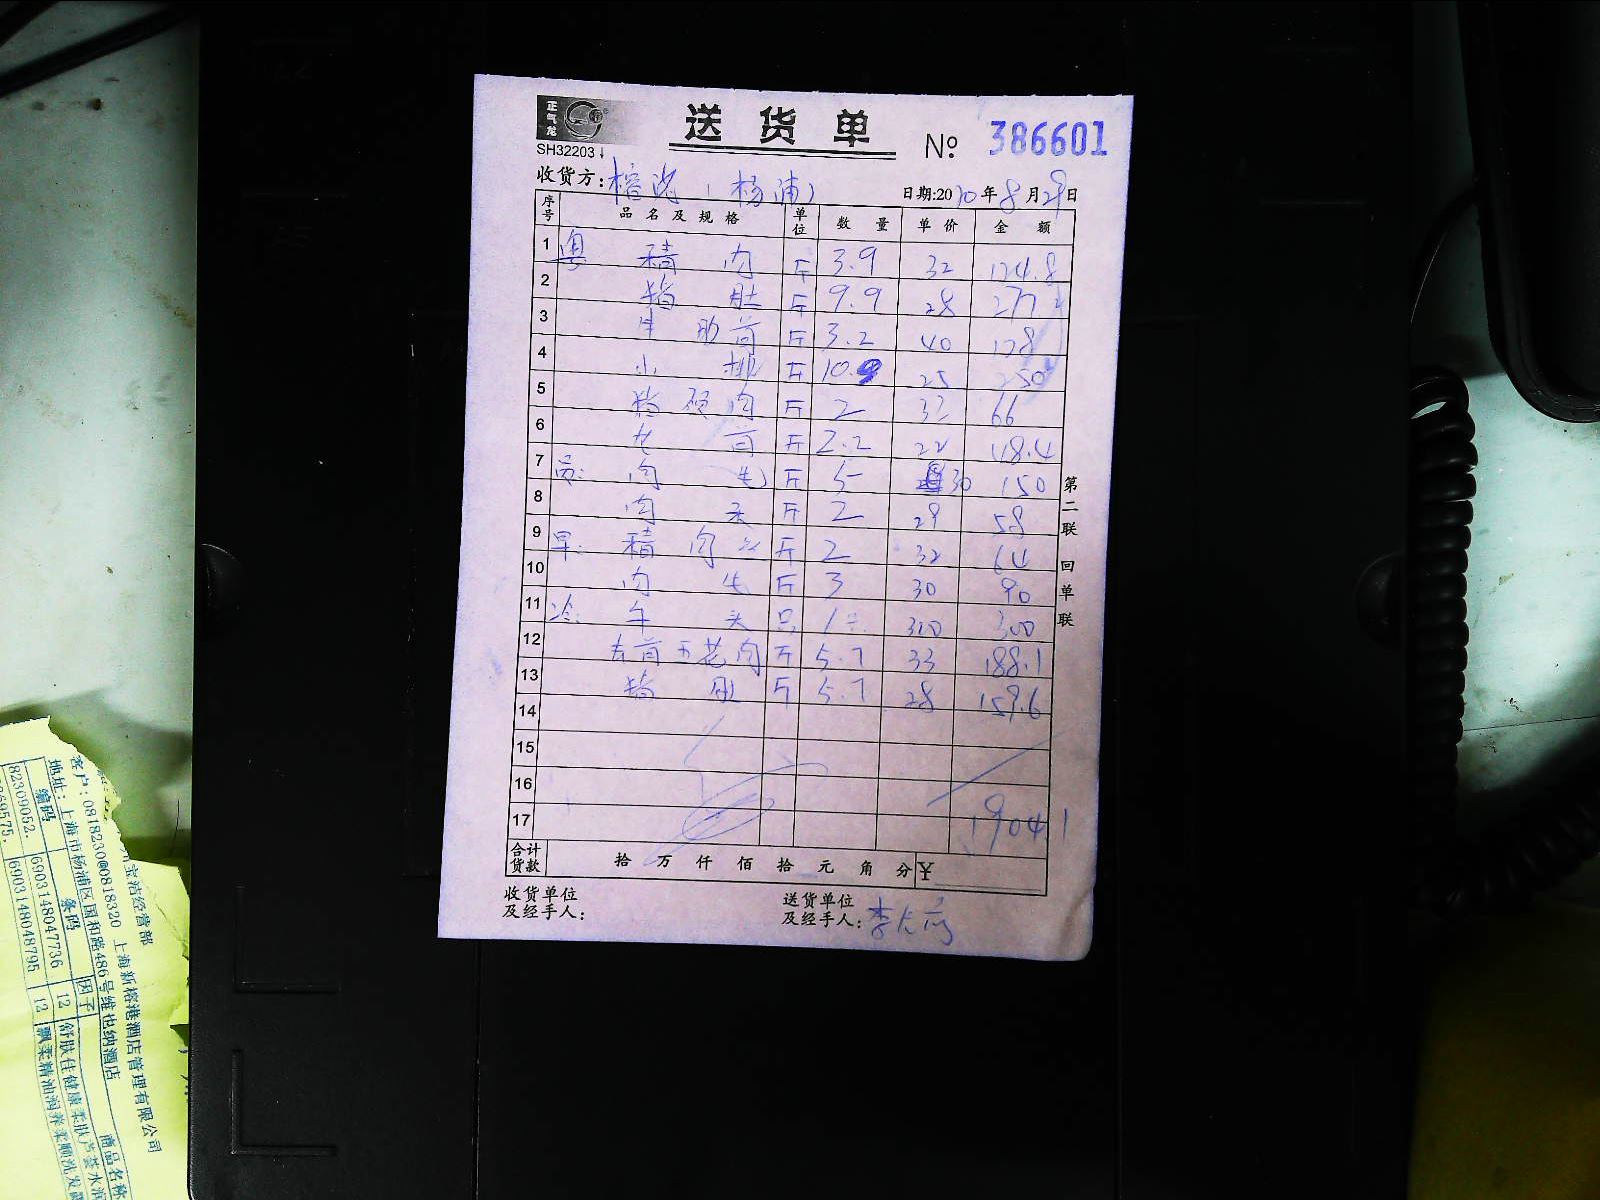 正气龙
送货单
SH32203
№ 386601
收货方: 榕港(杨浦)
日期:2020年8月29日
序号 品名及规格 单位 数量 单价 金额
1 粤 精肉 斤 3.9 32 124.8
2 猪肚 斤 9.9 28 277.2
3 牛肋前 斤 3.2 40 128
4 小排 斤 10. 25 250
5 猪颈肉 斤 2 33 66
6 斤 2.2 22 48.4
7 员: 肉 斤 5 30 150
8 肉 斤 2 29 58
9 早: 精肉 斤 2 32 64
10 肉 斤 3 30 90
11 冷: 头 只 1 300 300
12 前五花肉 斤 5.7 33 188.1
13 猪肚 斤 5.7 28 159.6
14
15
16
17 1904.1
合计货款 拾 万 仟 佰 拾 元 角 分 ¥
收货单位及经手人:
送货单位及经手人: 李
第二联 回单联
宝洁经营部
客户: 0818230@0818320 上海新榕港酒店管理有限公司
地址: 上海市杨浦区国和路486号维也纳酒店
编码 条码 因子 商品名称
82309052. 6903148047736 12 舒肤佳健康柔肤芦荟水润
6903148048795 12 飘柔精油润养柔顺洗发露